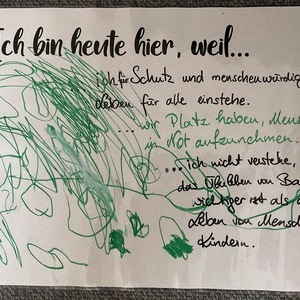 Ich bin heute hier, weil...
ich für Schutz und menschenwürdig
Leben für alle einstehe.
... wir Platz haben, Mens
in Not aufzunehmen.
... ich nicht verstehe,
das Überleben von Ba
wichtiger ist als d
Leben von Mensch
Kindern.